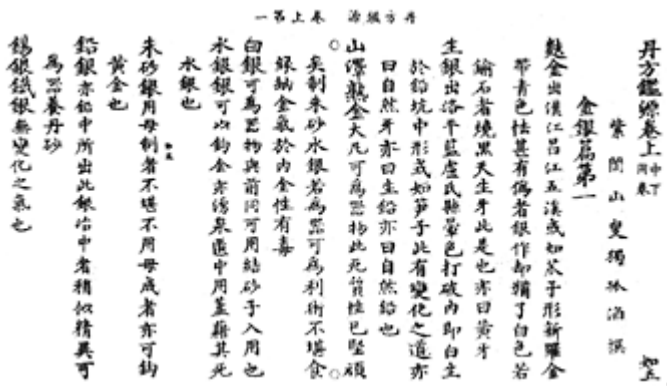 丹方鑑源 卷上第一
丹方鑑源卷上 中下同卷 如五
紫閣山叟獨孤滔撰
金銀篇第一
麩金出漢江呂江五溪或如苽子形新羅金
帶青色怯甚有偽者銀作却猶了白色若
鍮石者燒黑天生牙此是也亦曰黃牙
生銀出洛平藍盧氏縣暈色打破內即白生
於鉛坑中形或如笋子此有變化之道亦
曰自然牙亦曰生鉛亦曰自然鉛也
山澤熟金大凡可為器物此死質性已堅頑
矣制朱砂水銀若為器可為利術不堪食
緣納金氣於內金性有毒
白銀可為器物與前同可用結砂子入用也
水銀銀可以鈎金亦須朱匱中用蓋藉其死
水銀也
朱砂銀用母制者不堪不用母成者亦可鈎
黃金也
鉛銀亦鉛中所出此銀冶中者稍似精異可
為器養丹砂
錫銀鐵銀無變化之氣也